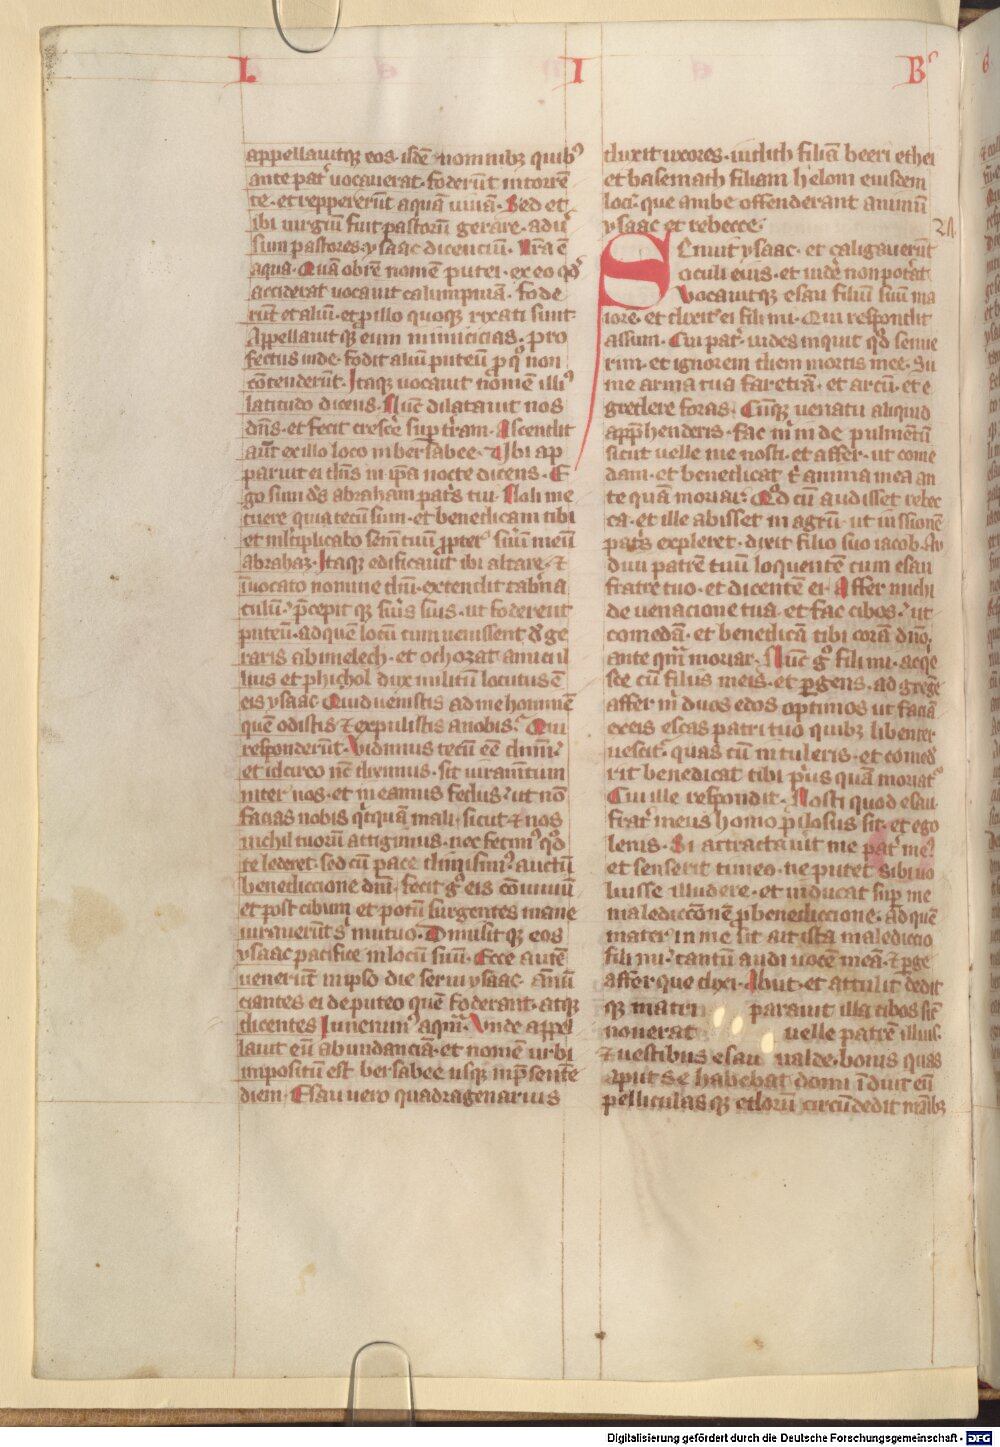 L I B⁹
appellauitqꝫ eos. isdē nominibꝫ quibꝰ
ante patˀ uocauerat. foderūt in torrē
te. et reppererūt aquā uiuā. Sed et
ibi iurgiū fuit pastorū gerare. aduˀ
sum pastores ysaac dicenciū. Nrā ē
aqua. Quā obrē nomē putei. ex eo qđ
acciderat uocauit calumpniā. fode
rūt et aliū. et ꝓ illo quoqꝫ rixati sunt.
Appellauit qꝫ eum inimicicias. pro
fectus inde. fodit aliū puteū ꝓ qˀ non
cōtenderūt. Itaqꝫ uocauit nomē illiꝰ
latitudo dicens. Nūc dilatauit nos
dn̄s. et fecit cresceˀ suꝑ tˀram. Ascendit
aūt ex illo loco in bersabee. Vbi ap
paruit ei dn̄s in ip̄a nocte dicens. E
go sum dˀs abraham patˀs tui. Noli me
tuere quia tecū sum. et benedicam tibi
et mltˀiplicabo semˀ tuū ꝓpterˀ suū meū
abrahaꝫ. Itaqꝫ edificauit ibi altare. ⁊
īuocato nomine dn̄i. extendit tabˀna
culū. p̄cepit qꝫ suˀis suis. ut foderent
puteū. ad quē locū cum uenissent dˀ ge
raris abimelech. et ochozat amici il
lius et phichol dux militū locutus ē
eis ysaac. Quid uenistis ad me hominē
quē odistis ⁊ expulistis a nobis. Qui
responderūt. Vidimus tecū eē dnm̄.
et idcirco nc̄ diximus. sit iuramˀtum
inter nos. et ineamus fedus. ut nō
facias nobis qˀcquā mali. sicut ⁊ nos
nichil tuorū attigimus. nec fecimꝰ qđ
te lederet. sed cū pace dimisimꝰ auctū
benediccione dn̄i. fecit gˀ eis cōuiuiū
et post cibum et potū surgentes mane
iurauerūt sˀ mutuo. Dimisit qꝫ eos
ysaac pacifice in locū suū. Ecce autē
uenerūt in ipso die serui ysaac. ānū
ciantes ei de puteo quē foderant. atqꝫ
dicentes Inuenimꝰ aqm̄. Vnde appel
lauit eū abundanciā. et nomē urbi
impositū est bersabee usqꝫ in p̄sentē
diem. Esau uero quadragenarius
duxit uxores. iudith filiā beeri ethei
et basemath filiam helom eiusdem
loci. que ambe offenderant animū
ysaac et rebecce.
Senuit ysaac. et caligauerūt
oculi eius. et uidˀe non potˀat
Vocauitqꝫ esau filiū suū ma
iore. et dixit ei fili mi. Qui respondit
assum. Cui patˀ. uides inquit qđ senue
rim. et ignorem diem mortis mee. Su
me arma tua faretrā. et arcū. et e
gredere foras. Cūqꝫ uenatu aliquid
appˀhenderis. fac m̄ in de pulmētū
sicut uelle me nosti. et affer. ut come
dam. et benedicat tˀ anima mea an
te quā moriar. Qđ cū audisset rebec
ca. et ille abisset in agrū. ut iussionē
patˀs expleret. dixit filio suo iacob. Au
diui patrē tuū loquentē cum esau
fratre tuo. et dicentē ei. Affer michi
de uenacione tua. et fac cibos. ut
comedā. et benedicā tibi corā dn̄o.
ante qm̄ moriar. Nūc gˀ fili mi. acqˀe
sce cū filiis meis. et ꝑgens. ad gregē
affer m̄ duos edos optimos ut faciā
ex eis escas patri tuo quibꝫ libenter
uescitˀ. quas cū intuleris. et comedˀ
rit benedicat tibi pˀus quā moriatˀ
Cui ille respondit. Nosti quod esau
fratˀ meus homo pˀilosus sit. et ego
lenis. Si attractauˀit me patˀ meꝰ
et senserit timeo. ne putet sibi uo
luisse illudere. et inducat suꝑ me
malediccōnē ꝓ benediccione. ad quē
mater in me sit ait ista malediccio
fili mi. tantū audi uocē meā. ⁊ ꝑge
affer que dixi. Abiit. et attulit dedit
qꝫ matri parauit illa cibos sicˀ
nouerat uelle patrē illius.
⁊ uestibus esau ualde. bonis quas
aput se habebat domi īduit eū
pelliculas qꝫ edorū circūdedit manibꝫ